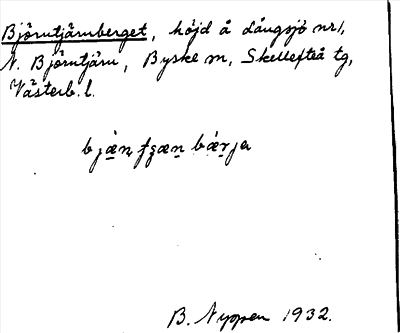 Björntjärnberget, höjd å Långsjö nr 1,
N. Björntjärn, Byske sn, Skellefteå tg,
Västerb. l.
B. Nyman 1932.